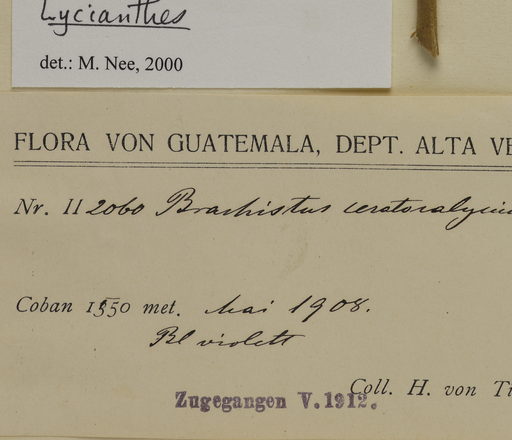 Lycianthes
det.: M. Nee, 2000
FLORA VON GUATEMALA, DEPT. ALTA VE
Nr. II 2060 Brachistus ceratocalycin
Coban 1550 met. Mai 1908.
Bl violett
Coll. H. von Tü
Zugegangen V. 1912.